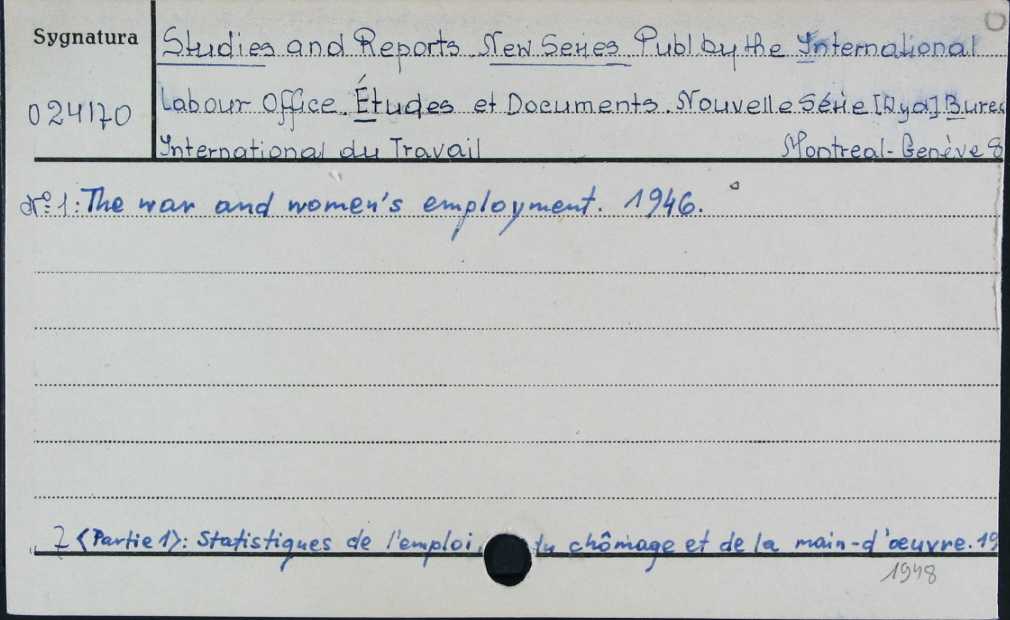 Sygnatura
024170
Studies and Reports. New Series Publ by the International
Labour Office. Études et Documents. Nouvelle Série [Wyd] Bureau
International du Travail Montreal-Genève 8
Nº 1: The war and women's employment. 1946.
7 <Partie 1>: Statistiques de l'emploi, du chômage et de la main-d'œuvre. 19
1948